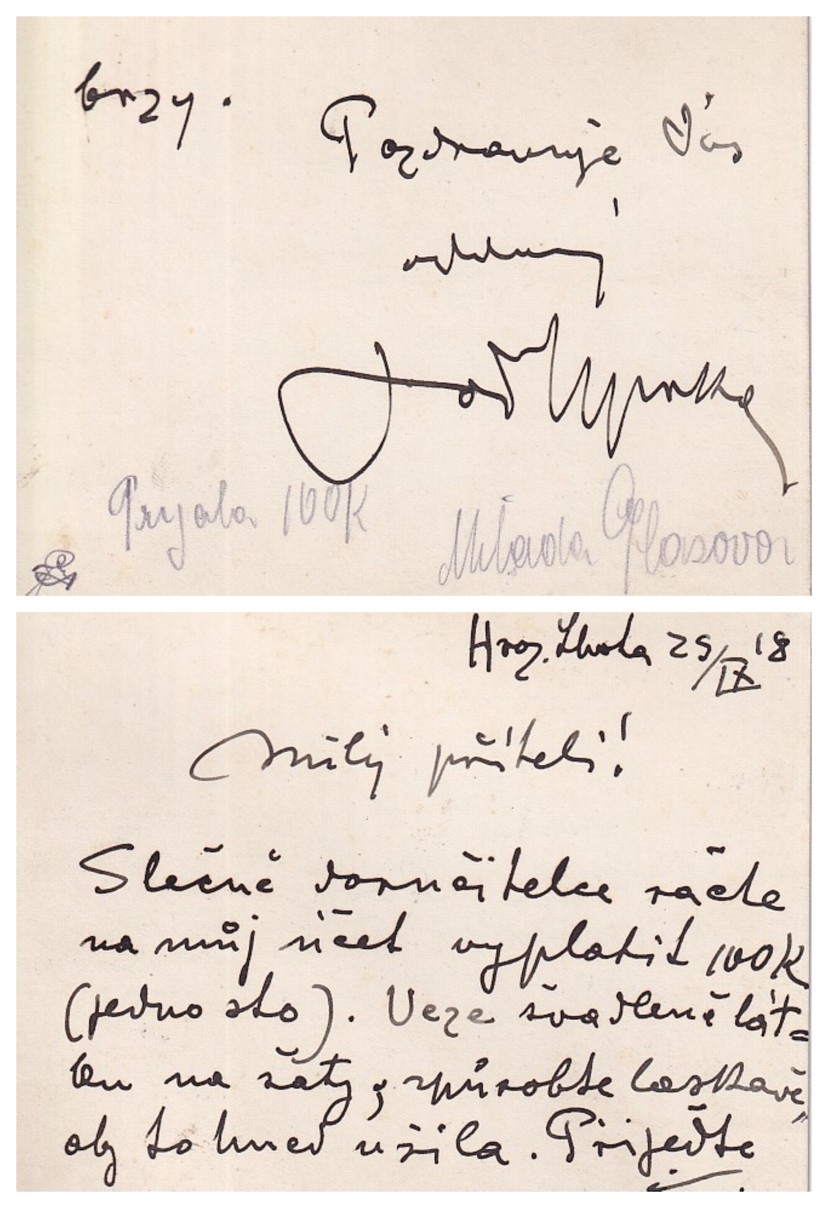 brzy.
Pozdravuje Vás
oddaný
Joža Uprka
Pryjala 100K
Mlada Plasova
Hroz. Lhota 25/IX '18
Milý příteli!
Slečně doručitelce račte
na můj účet vyplatit 100K
(jedno sto). Veze švadleně lát=
ku na šaty; způsobte laskavě,
aby to hned ušila. Přijeďte